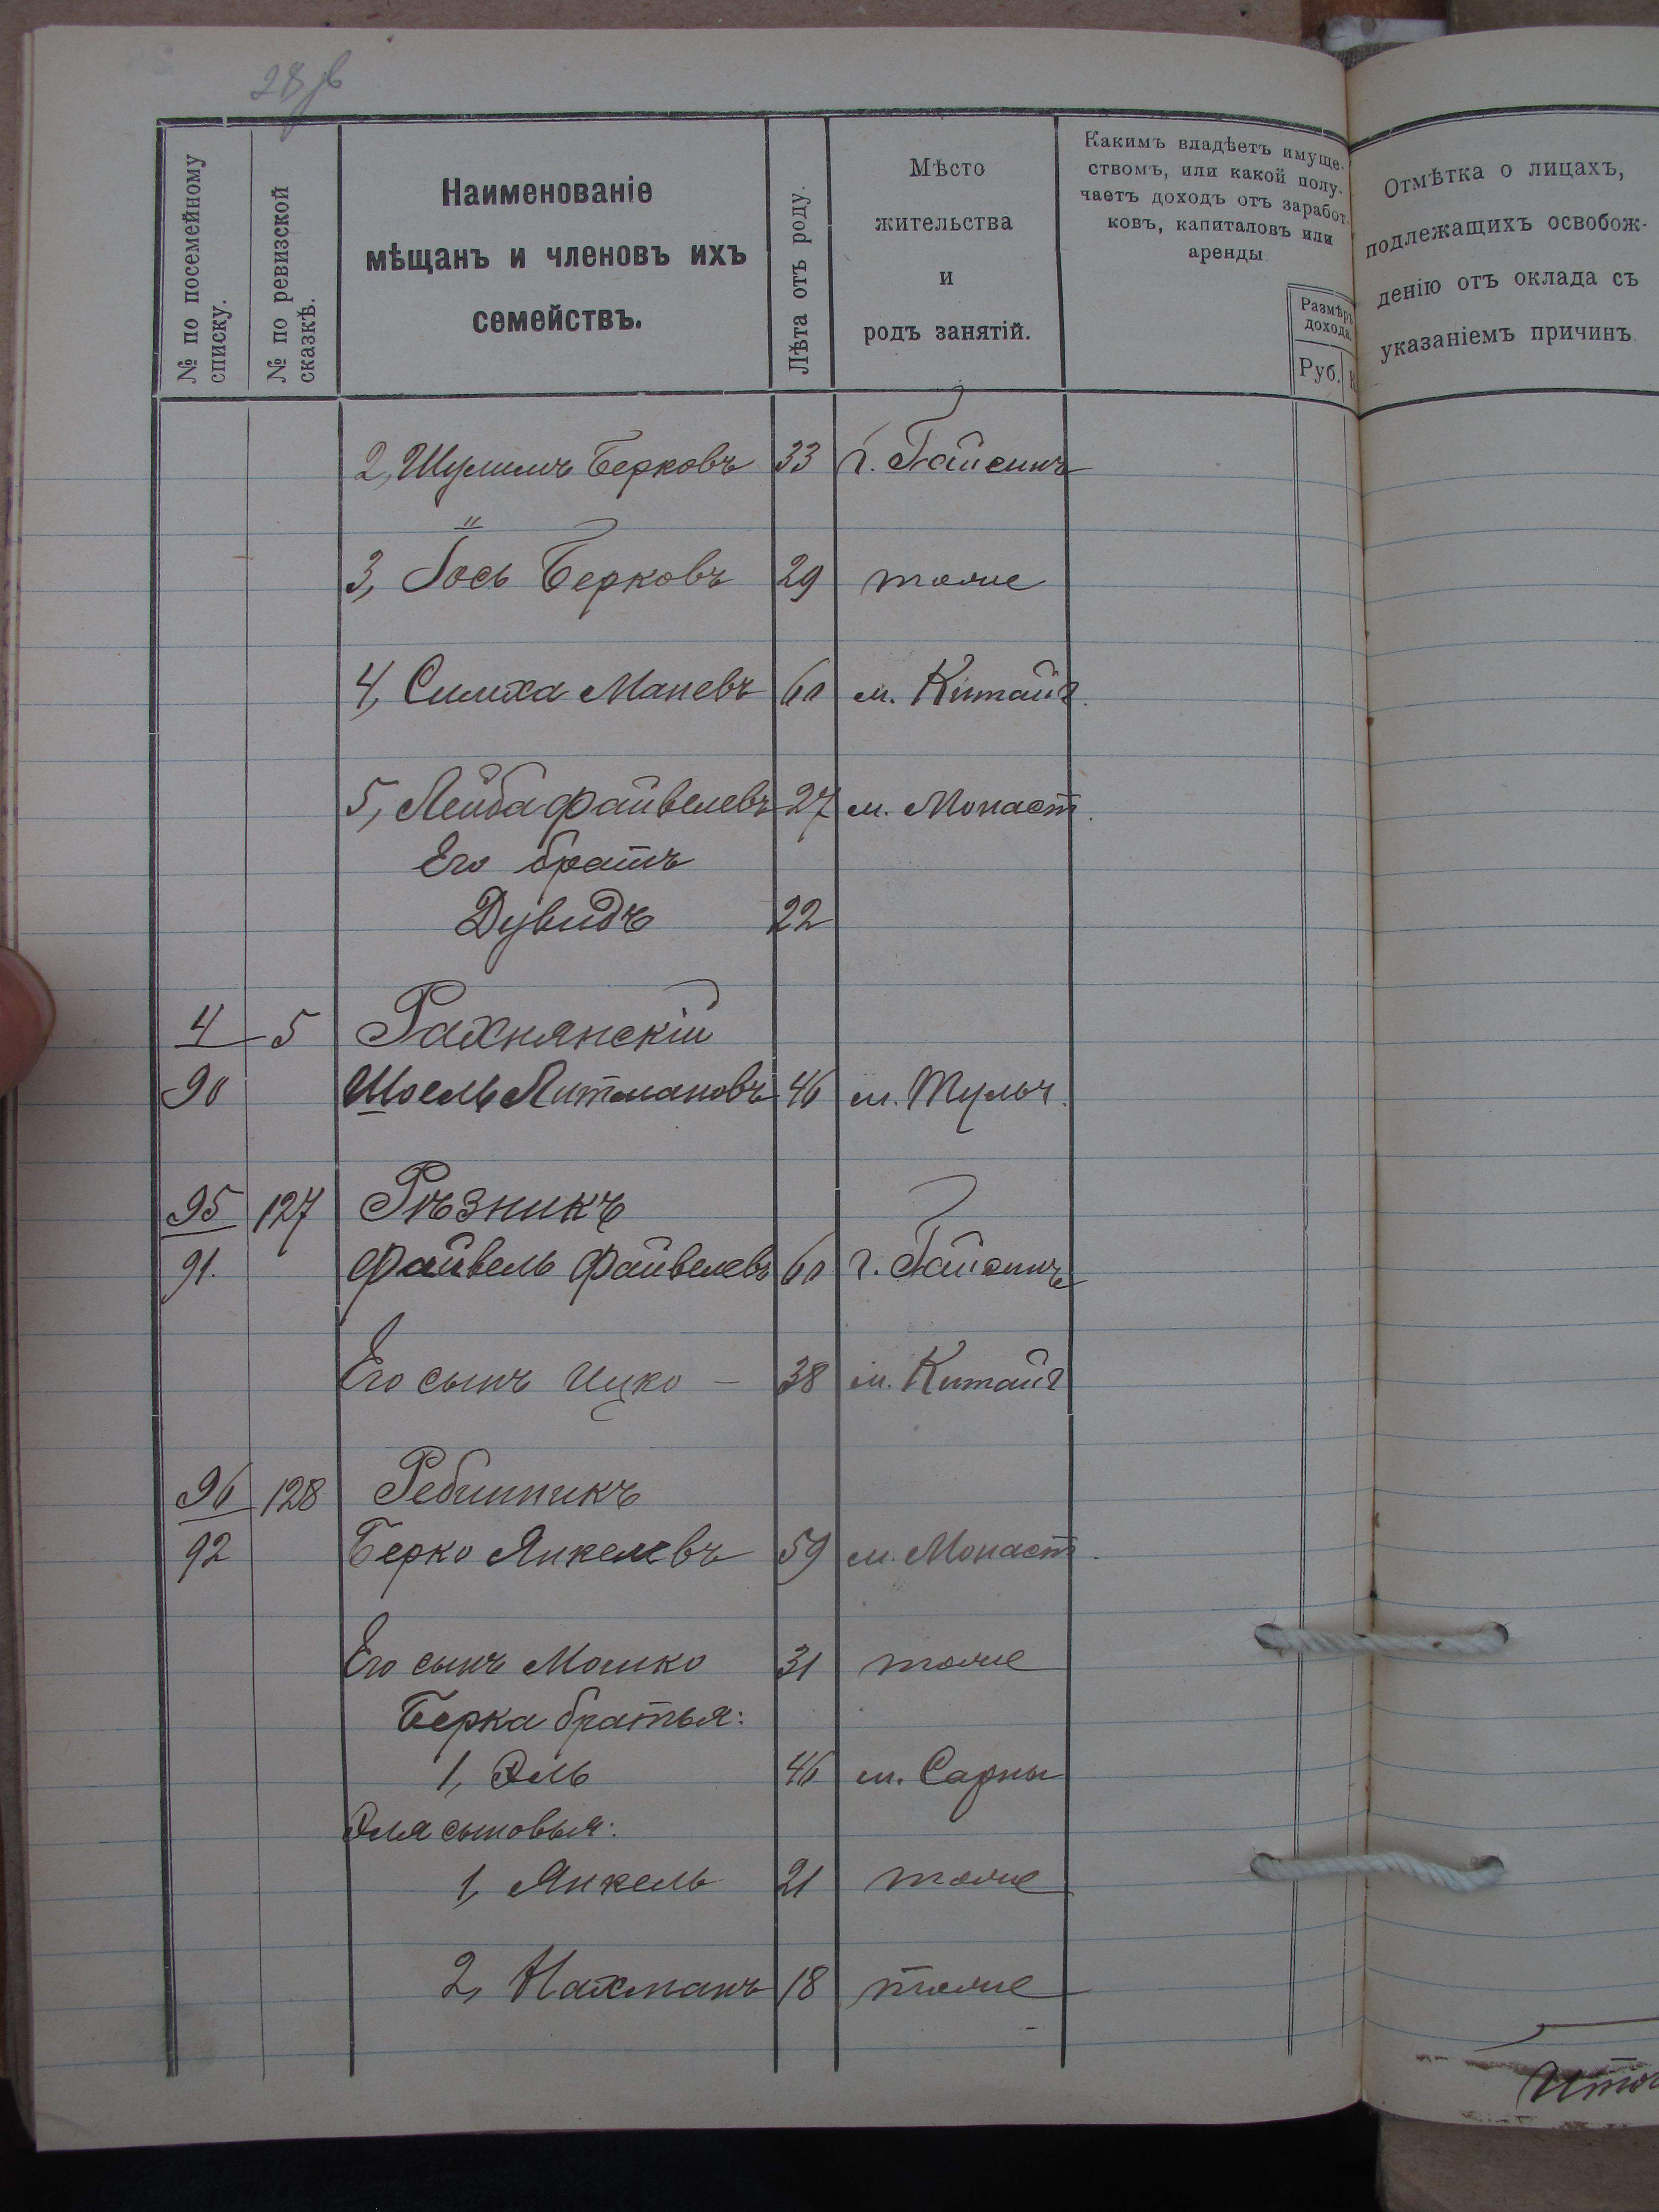 28
№ по посемейному
списку.
№ по ревизской
сказкѣ.
Наименованіе
мѣщанъ и членовъ ихъ
семействъ.
Лѣта отъ роду.
Мѣсто
жительства
и
родъ занятій.
Какимъ владѣетъ имуще-
ствомъ, или какой полу-
чаетъ доходъ отъ заработ-
ковъ, капиталовъ или
аренды
Размѣръ
дохода
Руб.
Отмѣтка о лицахъ,
подлежащихъ освобож-
денію отъ оклада съ
указаніемъ причинъ.
2, Шулимъ Берковъ 33 г. Гайсинъ
3, Іось Берковъ 29 тоже
4, Симха Маневъ 60 м. Китайг.
5, Лейба Файвелевъ 27 м. Монаст.
Его братъ
Дувидъ 22
4 5 Рахнянскій
90 Шоель Литмановъ 46 м. Тульч.
95 127 Рѣзникъ
91. Файвель Файвелевъ 60 г. Гайсинъ
Его сынъ Ицко — 38 м. Китайг
96 128 Ребинникъ
92 Берко Янкелевъ 59 м. Монаст.
Его сынъ Мошко 31 тоже
Берка братья:
1, Эль 46 м. Сарны
Эля сыновья:
1, Янкель 21 тоже
2, Нахманъ 18 тоже